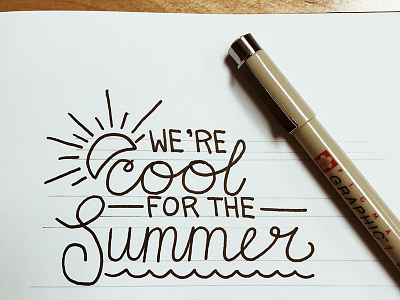 WE'RE
Cool
FOR THE
Summer
PIGMA
GRAPHIC